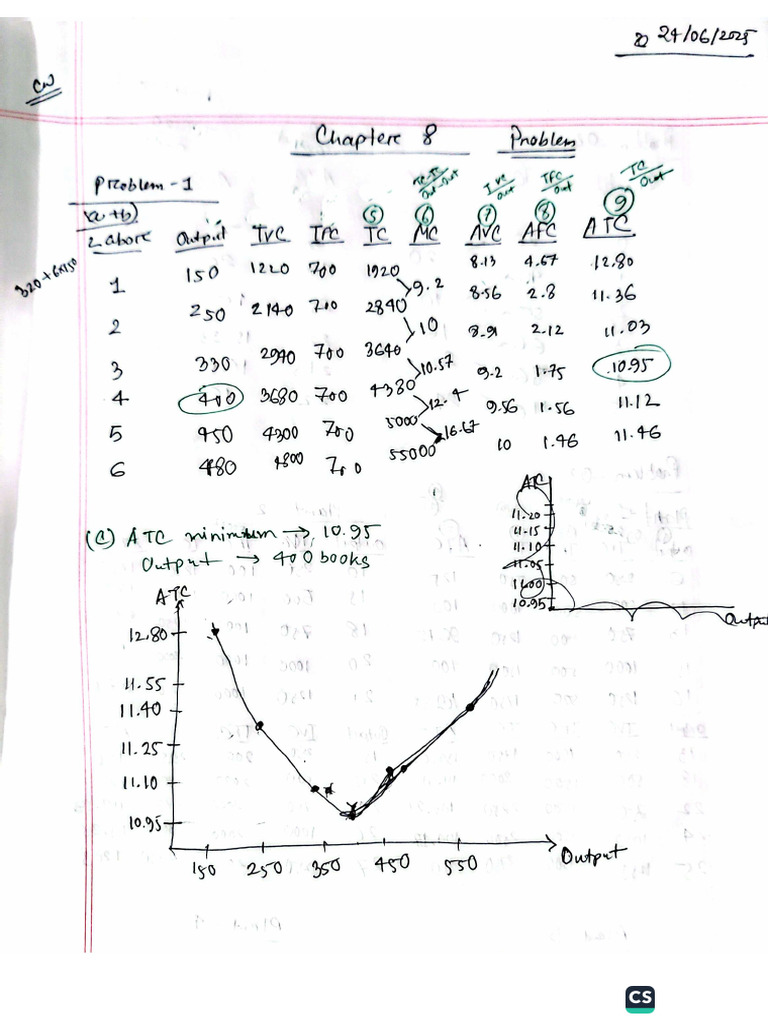 24/06/2025
CW
Chapter 8 Problem
Problem-1
(a+b)
TC-TC/Out-Out TVC/Out TFC/Out TC/Out
5 6 7 8 9
Labore Output TVC TFC TC MC AVC AFC ATC
320+6x150
1 150 1220 700 1920 8.13 4.67 12.80
9.2
2 250 2140 700 2840 8.56 2.8 11.36
10
3 330 2940 700 3640 8.91 2.12 11.03
10.57
4 400 3680 700 4380 9.2 1.75 10.95
12.4
5 450 4300 700 5000 9.56 1.56 11.12
16.67
6 480 4800 700 55000 10 1.46 11.46
(c) ATC minimum → 10.95
Output → 400 books
ATC
11.20
11.15
11.10
11.05
11.00
10.95
Output
ATC
12.80
11.55
11.40
11.25
11.10
10.95
150 250 350 450 550
Output
CS